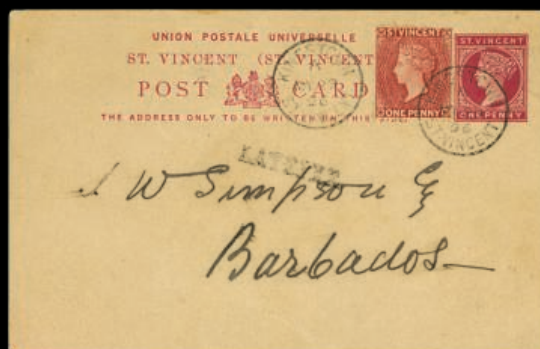 UNION POSTALE UNIVERSELLE
ST. VINCENT (ST. VINCENT
POST CARD
THE ADDRESS ONLY TO BE WRITTEN ON THIS
ST VINCENT
ONE PENNY
ST. VINCENT
ONE PENNY
ST. VINCENT
W Simpson Eq
Barbados